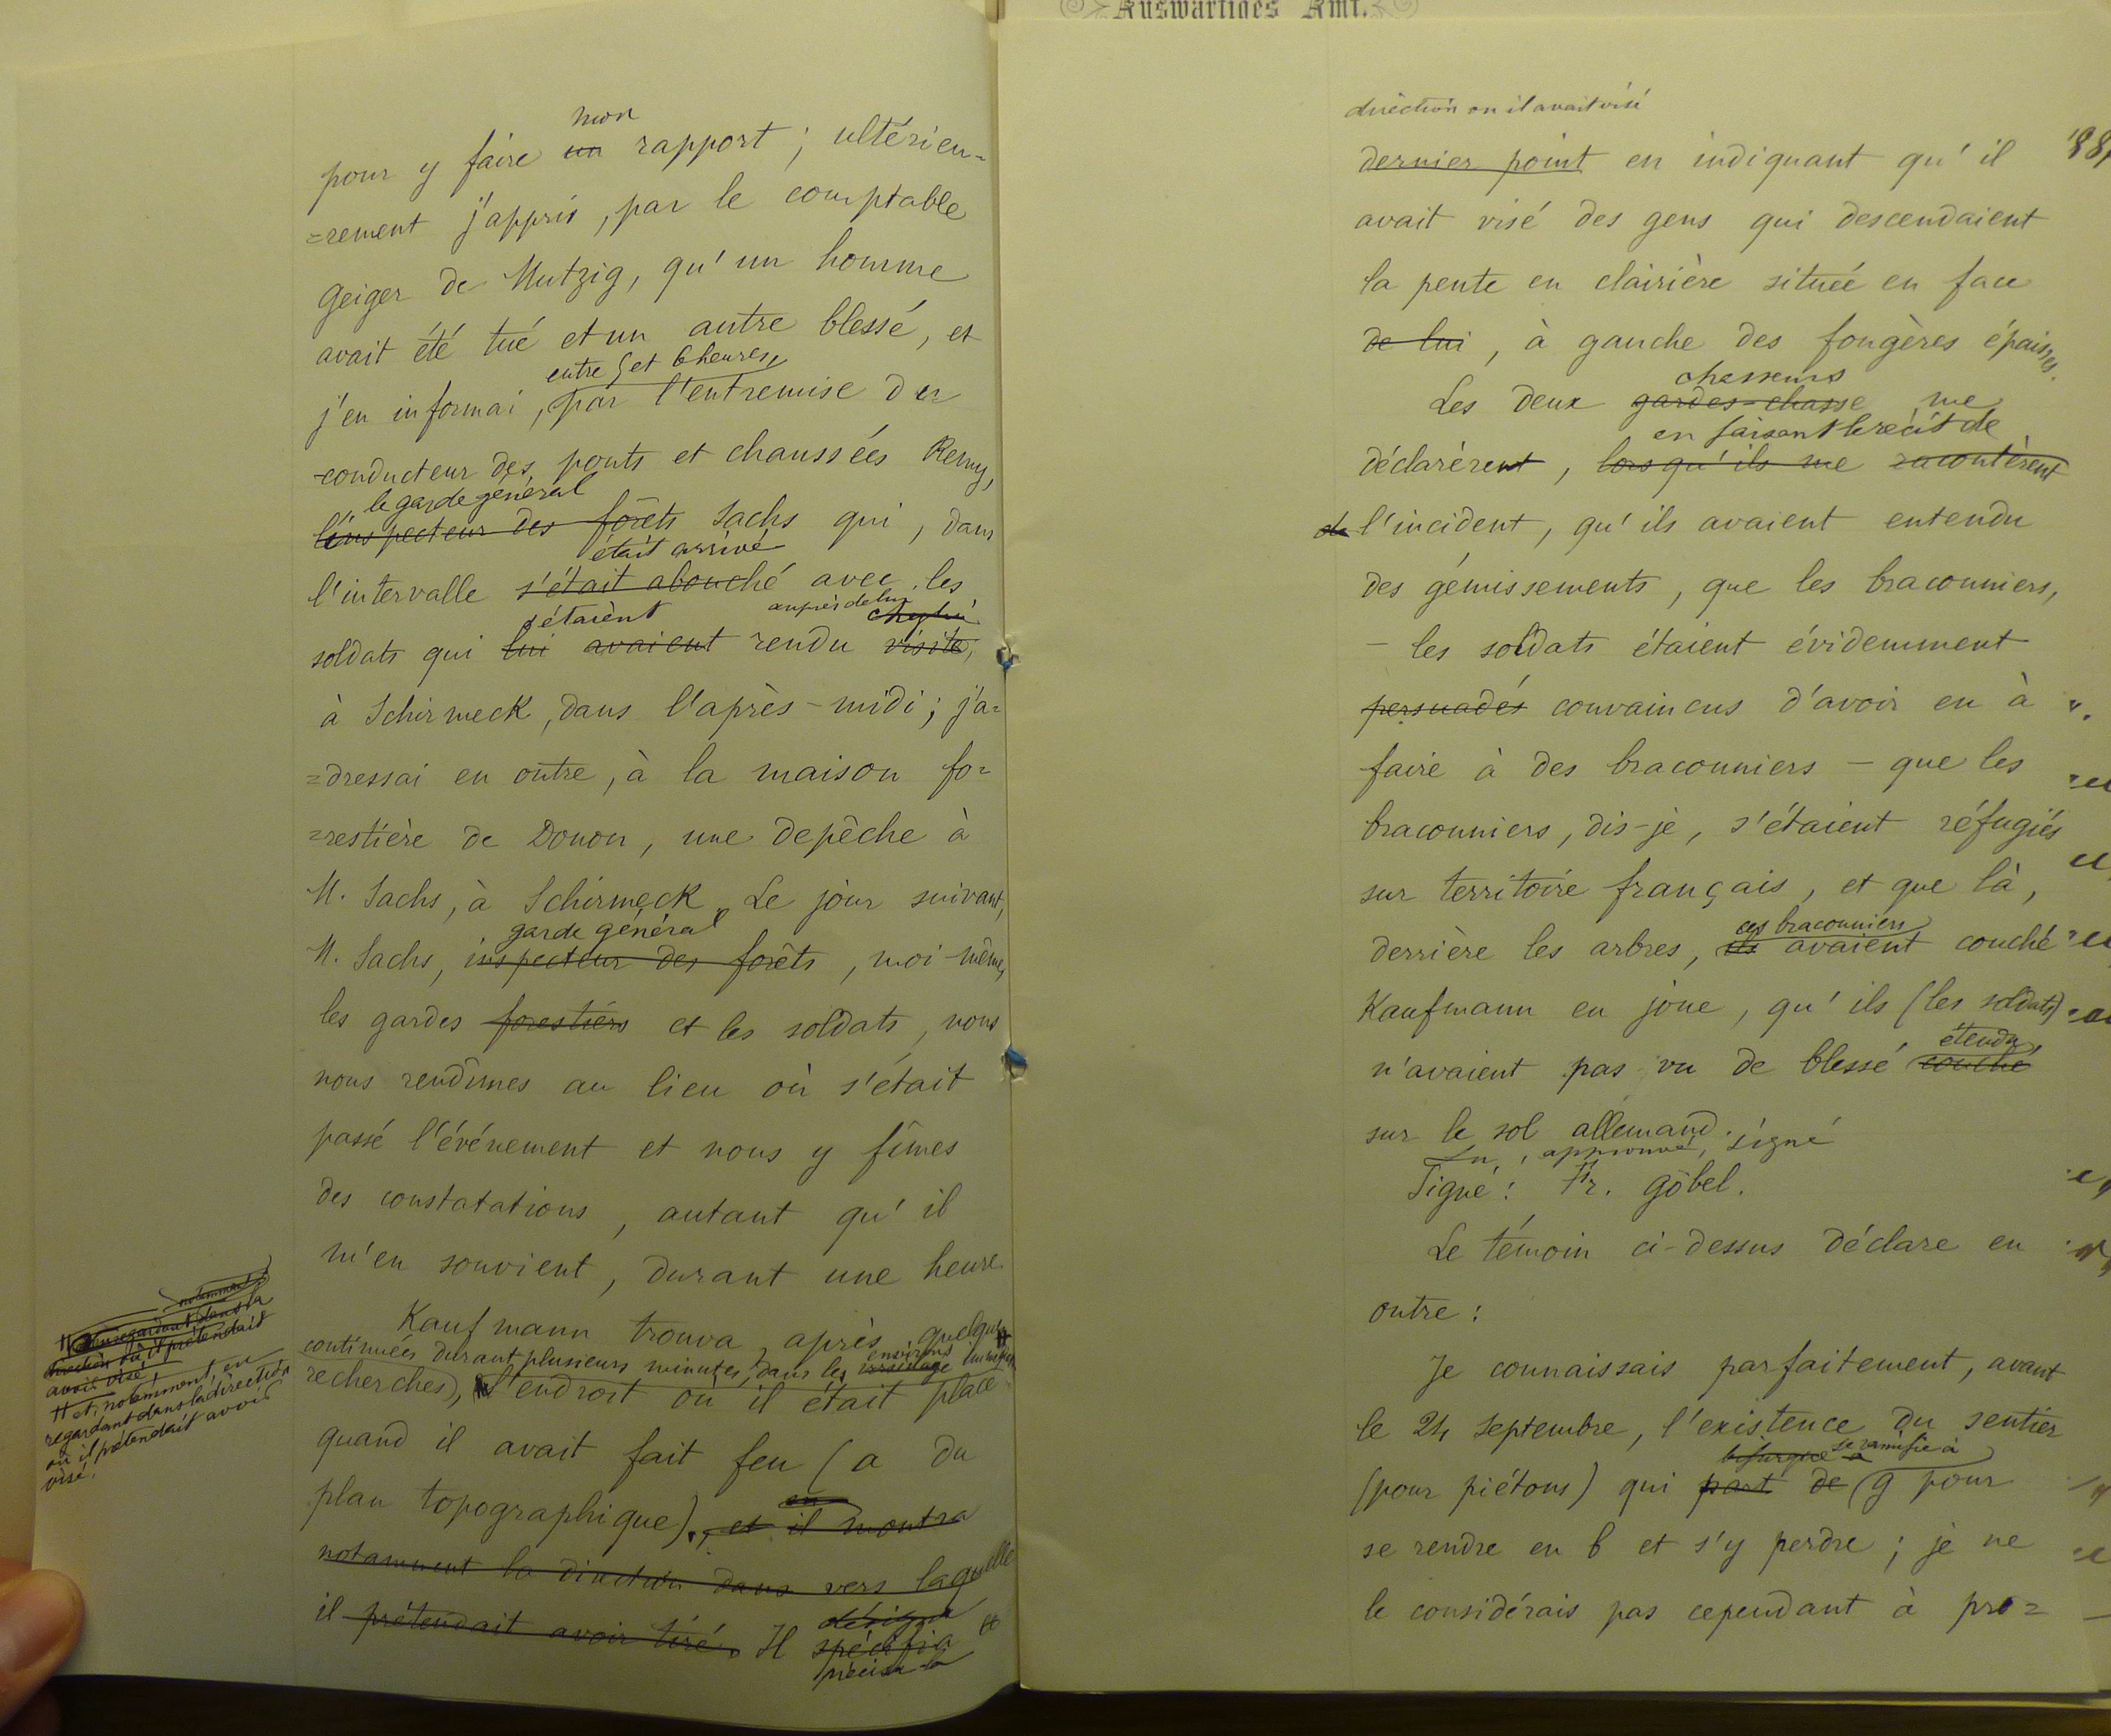 Auswärtiges Amt.
mon
pour y faire un rapport ; ultérieu-
=rement j'appris, par le comptable
Geiger de Mutzig, qu'un homme
avait été tué et un autre blessé, et
entre 5 et 6 heures,
j'en informai, par l'entremise du
conducteur des ponts et chaussées Remy,
le garde général
l'inspecteur des forêts Sachs qui, dans
était arrivé
l'intervalle s'était abouché avec les
s'étaient auprès de lui chez lui
soldats qui lui avaient rendu visite,
à Schirmeck, dans l'après-midi ; j'a=
=dressai en outre, à la maison fo=
=restière de Donon, une depêche à
M. Sachs, à Schirmeck. Le jour suivant,
garde général
M. Sachs, inspecteur des forêts, moi-même,
les gardes forestiers et les soldats, nous
nous rendîmes au lieu où s'était
passé l'événement et nous y fîmes
des constatations, autant qu'il
m'en souvient, durant une heure
Kaufmann trouva, après quelques
continuées durant plusieurs minutes, dans les environs
recherches), l'endroit où il était placé
quand il avait fait feu (a du
plan topographique)., et il montra
en
notamment la direction dans vers laquelle
il prétendait avoir tiré. Il spécifia
désigna
précisa
notamment
en regardant dans la
direction où il prétendait
avoir visé
# et, notamment, en
regardant dans la direction
où il prétendait avoir
visé.
direction où il avait visé
dernier point en indiquant qu'il
avait visé des gens qui descendaient
la pente en clairière située en face
de lui, à gauche des fougères épaisses.
chasseurs
Les deux gardes-chasse me
en faisant le récit de
déclarèrent, lorsqu'ils me racontèrent
de l'incident, qu'ils avaient entendu
des gémissements, que les braconniers,
— les soldats étaient évidemment
persuadés convaincus d'avoir eu à
faire à des braconniers — que les
braconniers, dis-je, s'étaient réfugiés
sur territoire français, et que là,
ces braconniers
derrière les arbres, ils avaient couché
Kaufmann en joue, qu'ils (les soldats)
étendu
n'avaient pas vu de blessé couché
sur le sol allemand.
Lu, approuvé, signé
Signé : Fr. Göbel.
Le témoin ci-dessus déclare en
outre :
Je connaissais parfaitement, avant
le 24 septembre, l'existence du sentier
bifurque à se ramifie à
(pour piétons) qui part de g pour
se rendre en b et s'y perdre ; je ne
le considérais pas cependant à pro=